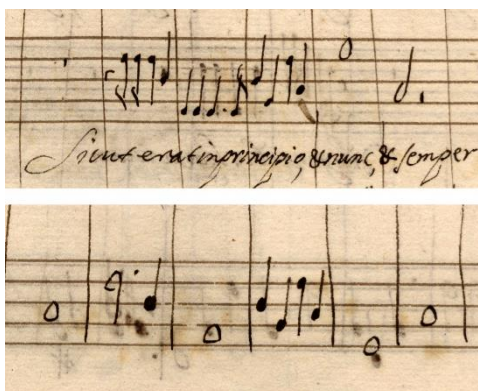 Sicut erat in principio, & nunc, & semper